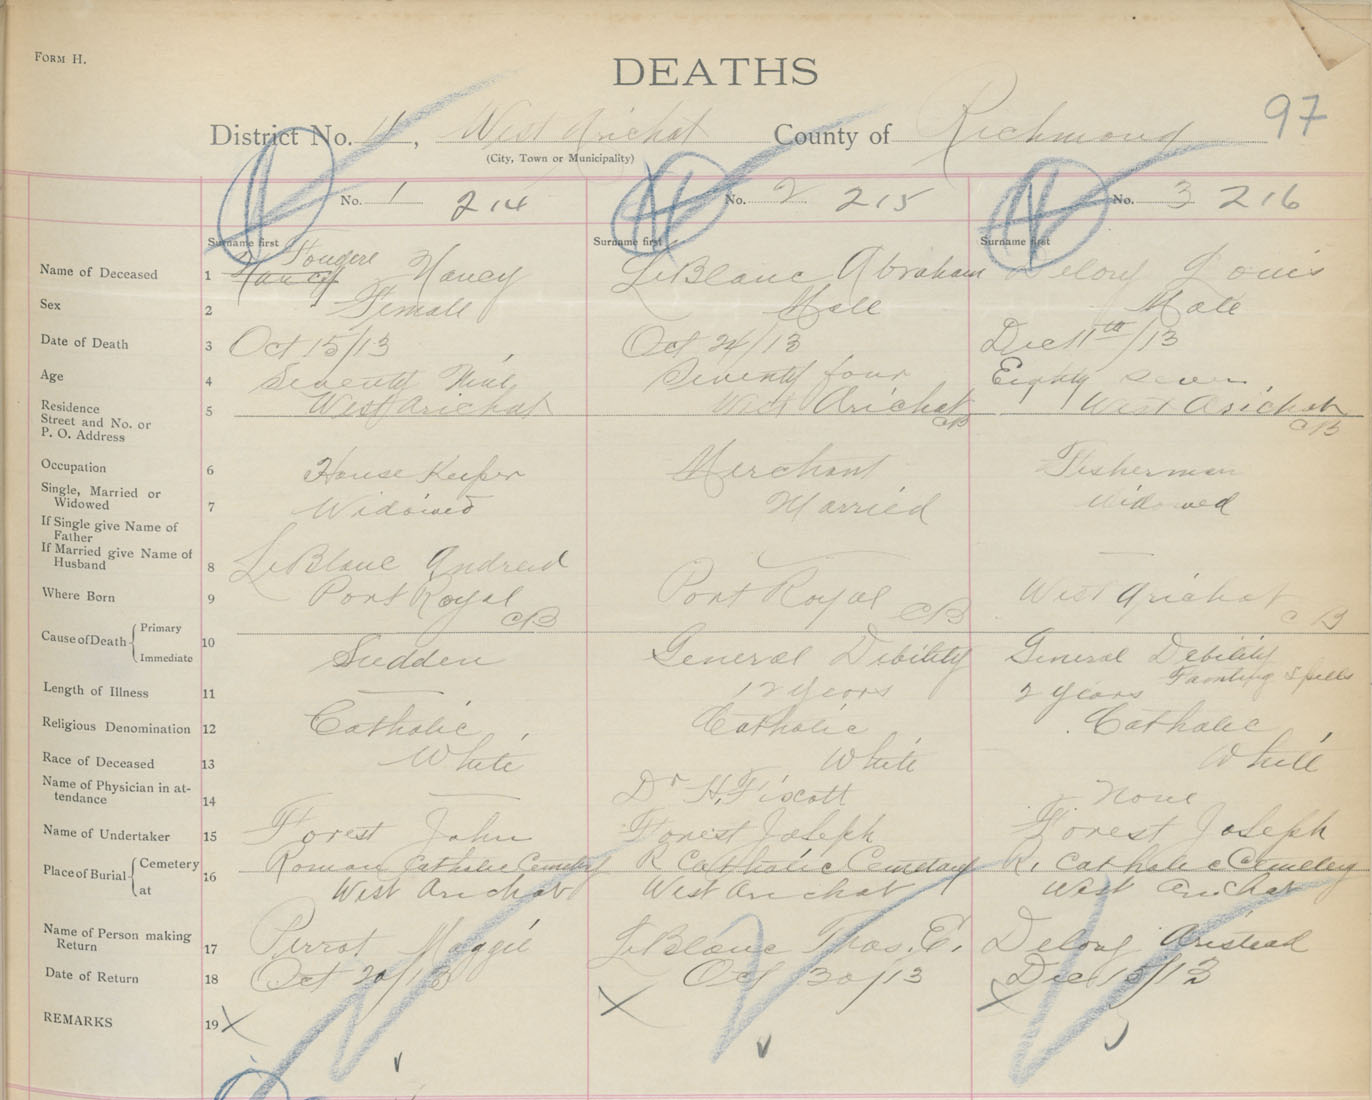 FORM H.
DEATHS
97
District No. 11, West Arichat County of Richmond
(City, Town or Municipality)
No. 1 214 No. 2 215 No. 3 216
Surname first Surname first Surname first
Fougere
Name of Deceased 1 Nancy Nancy LeBlanc Abraham Delory Louis
Sex 2 Female Male Male
Date of Death 3 Oct 15/13 Oct 24/13 Dec 11th/13
Age 4 Seventy Nine Seventy four Eighty seven
Residence
Street and No. or
P. O. Address 5 West Arichat West Arichat CB West Arichat CB
Occupation 6 House Keeper Merchant Fisherman
Single, Married or
Widowed 7 Widowed Married Widowed
If Single give Name of
Father
If Married give Name of
Husband 8 LeBlanc Andrew — —
Where Born 9 Port Royal CB Port Royal CB West Arichat CB
Cause of Death { Primary
Immediate 10 Sudden General Debility General Debility
Fainting Spells
Length of Illness 11 — 12 Years 2 Years
Religious Denomination 12 Catholic Catholic Catholic
Race of Deceased 13 White White White
Name of Physician in at-
tendance 14 — Dr H. Fixott None
Name of Undertaker 15 Forest John Forest Joseph Forest Joseph
Place of Burial { Cemetery
at 16 Roman Catholic Cemetery R Catholic Cemetery R. Catholic Cemetery
West Arichat West Arichat West Arichat
Name of Person making
Return 17 Perrot Maggie LeBlanc Thos. E. Delory Aristead
Date of Return 18 Oct 20/13 Oct 30/13 Dec 15/13
REMARKS 19